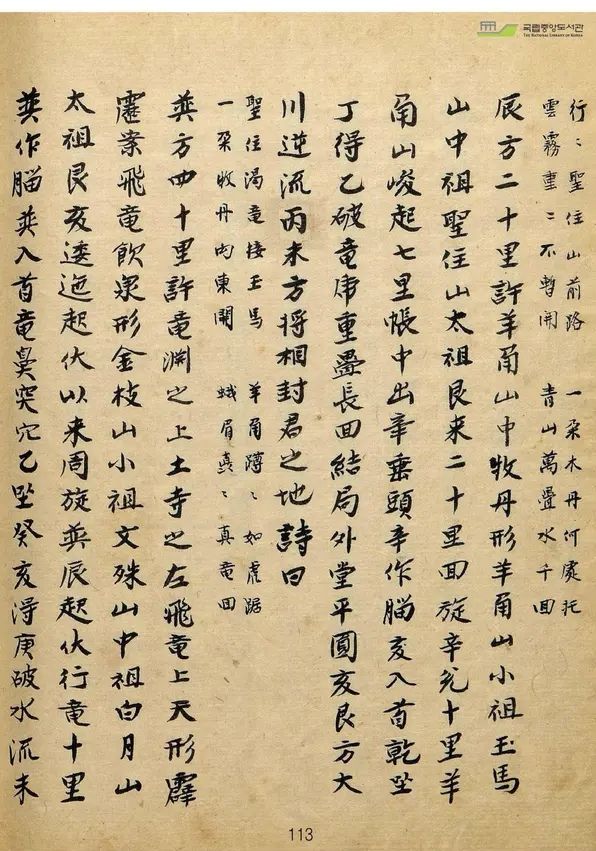 국립중앙도서관
THE NATIONAL LIBRARY OF KOREA
行〻聖住山前路 一朶木丹何處托
雲霧重〻不暫開 青山萬疊水千回
辰方二十里許羊角山中牧丹形羊角山小祖玉馬
山中祖聖住山太祖艮来二十里回旋辛兌十里羊
角山峻起七里帳中出辛垂頭辛作腦亥入首乾坐
丁得乙破竜虎重疊長回結局外堂平圓亥艮方大
川逆流丙未方将相封君之地詩曰
聖住渴竜接玉馬 羊角蹲〻如虎踞
一朶牧丹向東開 蛾眉真〻真竜回
巽方四十里許竜渊之上土寺之左飛竜上天形霹
靂案飛竜飲泉形金枝山小祖文殊山中祖白月山
太祖艮亥逶迤起伏以来周旋巽辰起伏行竜十里
巽作腦巽入首竜鼻突穴乙坐癸亥得庚破水流未
113